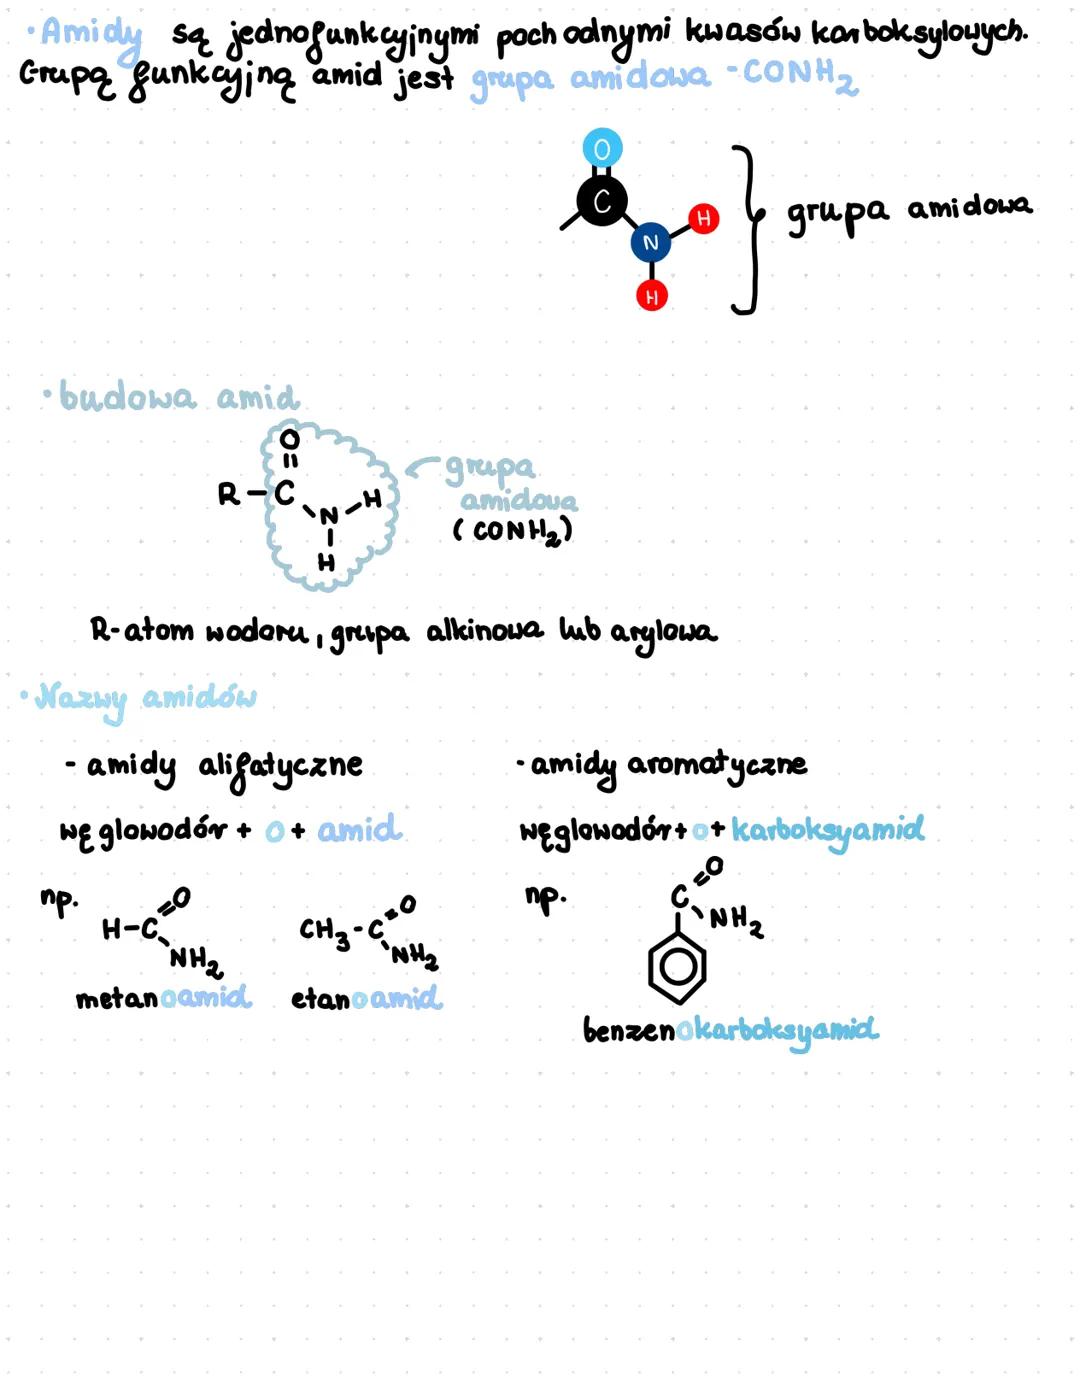 • Amidy są jednofunkcyjnymi pochodnymi kwasów karboksylowych.
Grupą funkcyjną amid jest grupa amidowa -CONH₂
O
C
N
H
H
grupa amidowa
• budowa amid
O
R-C
N-H
H
grupa
amidowa
(CONH₂)
R-atom wodoru, grupa alkinowa lub arylowa
• Nazwy amidów
- amidy alifatyczne
węglowodór + o + amid
np.
H-C
O
NH₂
metanoamid
CH₃-C
O
NH₂
etanoamid
- amidy aromatyczne
węglowodór + o + karboksyamid
np.
O
C
NH₂
benzenokarboksyamid